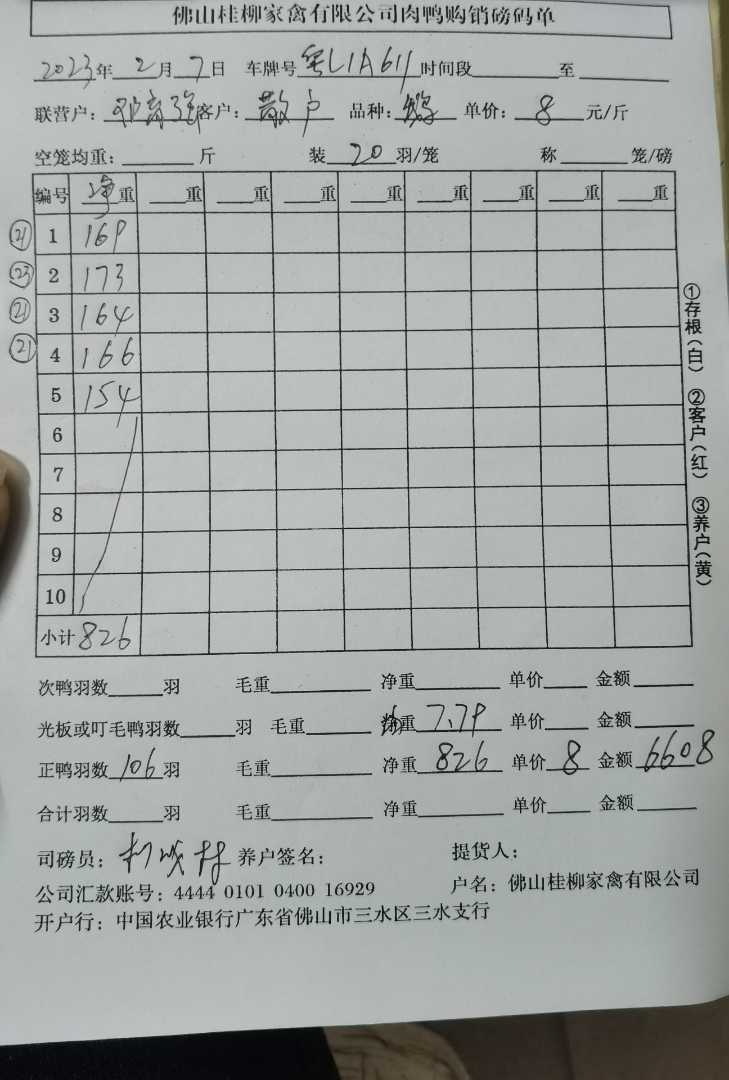 佛山桂柳家禽有限公司肉鸭购销磅码单
2023年2月7日 车牌号粤L1A611时间段 至
联营户: 客户: 散户 品种: 单价: 8 元/斤
空笼均重: 斤 装 20 羽/笼 称 笼/磅
编号 净重 重 重 重 重 重 重 重 重
㉑ 1 169
㉓ 2 173
㉑ 3 164
㉑ 4 166
5 154
6
7
8
9
10
小计 826
①存根(白) ②客户(红) ③养户(黄)
次鸭羽数 羽 毛重 净重 单价 金额
光板或叮毛鸭羽数 羽 毛重 均重 7.79 单价 金额
正鸭羽数106羽 毛重 净重 826 单价 8 金额 6608
合计羽数 羽 毛重 净重 单价 金额
司磅员: 养户签名: 提货人:
公司汇款账号: 4444 0101 0400 16929 户名: 佛山桂柳家禽有限公司
开户行: 中国农业银行广东省佛山市三水区三水支行